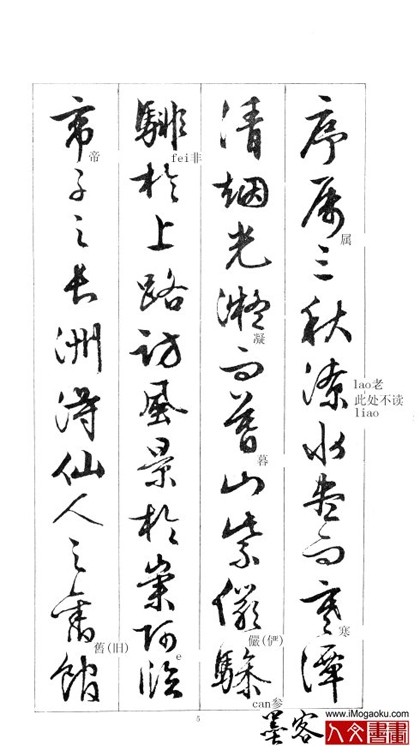 序属三秋潦水尽而寒潭
属
lao老
此处不读
liao
寒
清烟光凝而暮山紫儼驂
凝
暮
儼(俨)
can参
騑於上路訪風景於崇阿臨
fei非
e
帝子之長洲得仙人之舊館
帝
舊(旧)
5
墨客
www.iMogaoku.com
人文書畫